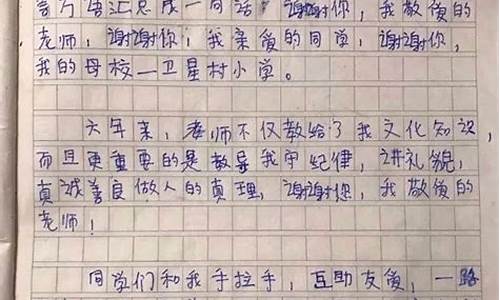 言万语汇总成一句话,谢谢你,我敬爱的
老师,谢谢你,我亲爱的同学,谢谢你,
我的母校—卫星村小学。
六年来,老师不仅教给了我文化知识,
而且更重要的是教导我守纪律,讲礼貌,
真诚善良做人的真理,谢谢您,我敬爱的
老师!
同学们和我手拉手,互助友爱,一路